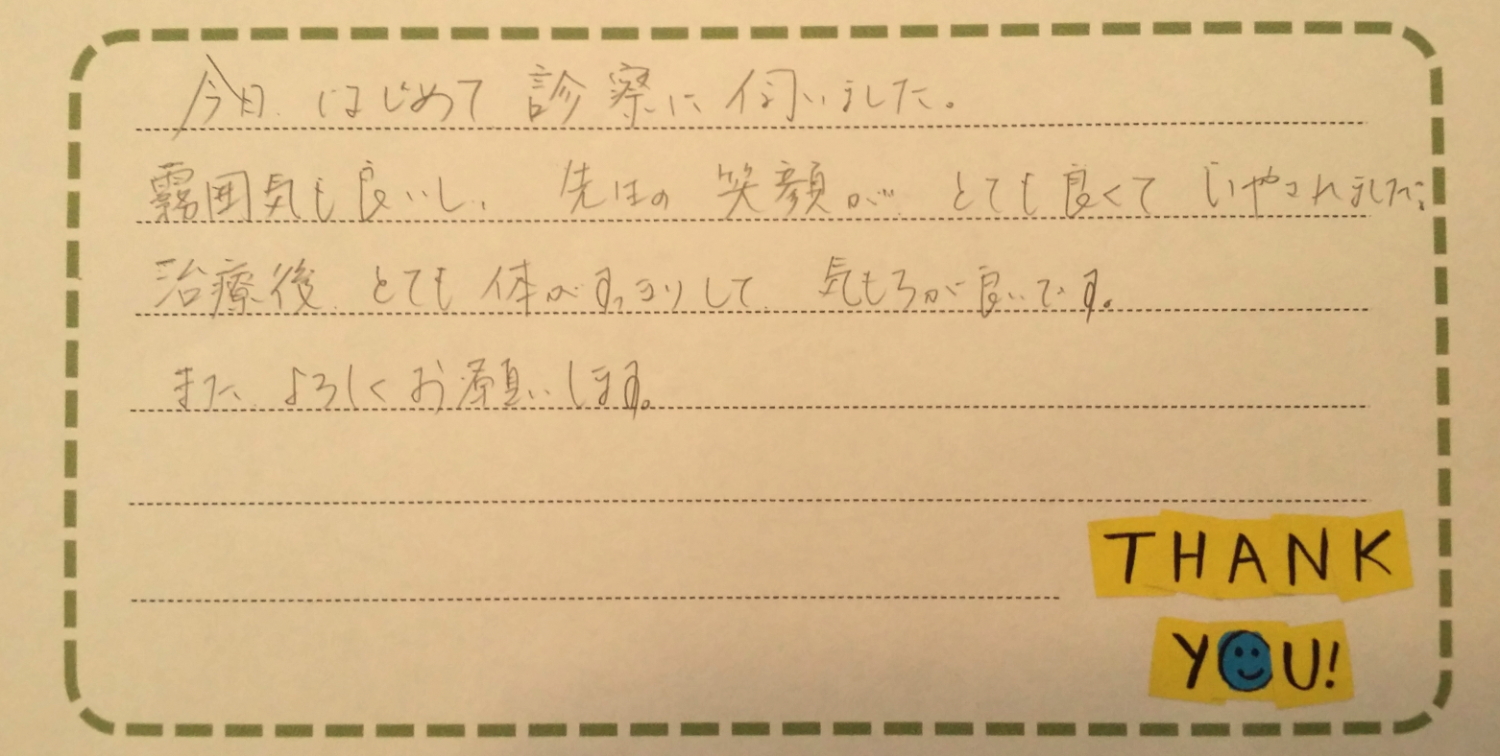 今日、はじめて診察に伺いました。
雰囲気も良いし、先生の笑顔が、とても良くていやされました。
治療後、とても体がすっきりして、気もちが良いです。
また、よろしくお願いします。
THANK
YOU!